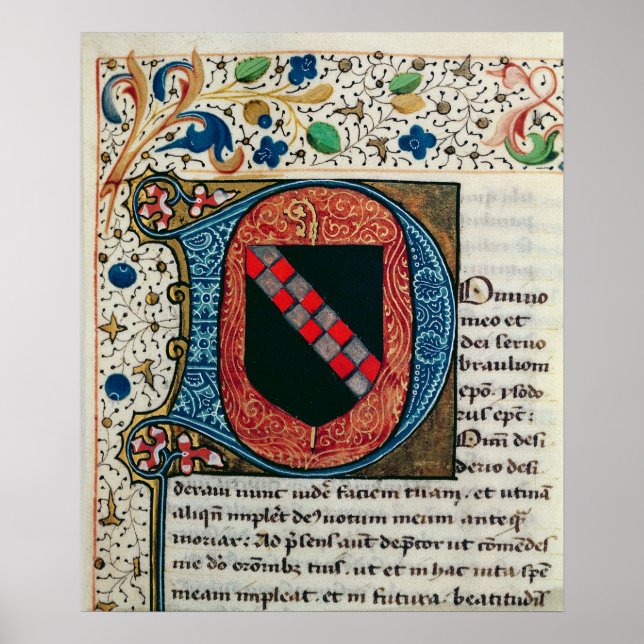 Domino
meo et
dei servo
brauliom
epo. ysido
rus epc:
Om desi
derio desi
deravi nunc videre faciem tuam. et utinam
aliqn implet de9 votum meum anteqm
moriar: Ad psens aut depcor ut comedes
me do oromb3 tuis. ut et in hac vita spem
meam impleat et in futura. beatitudis